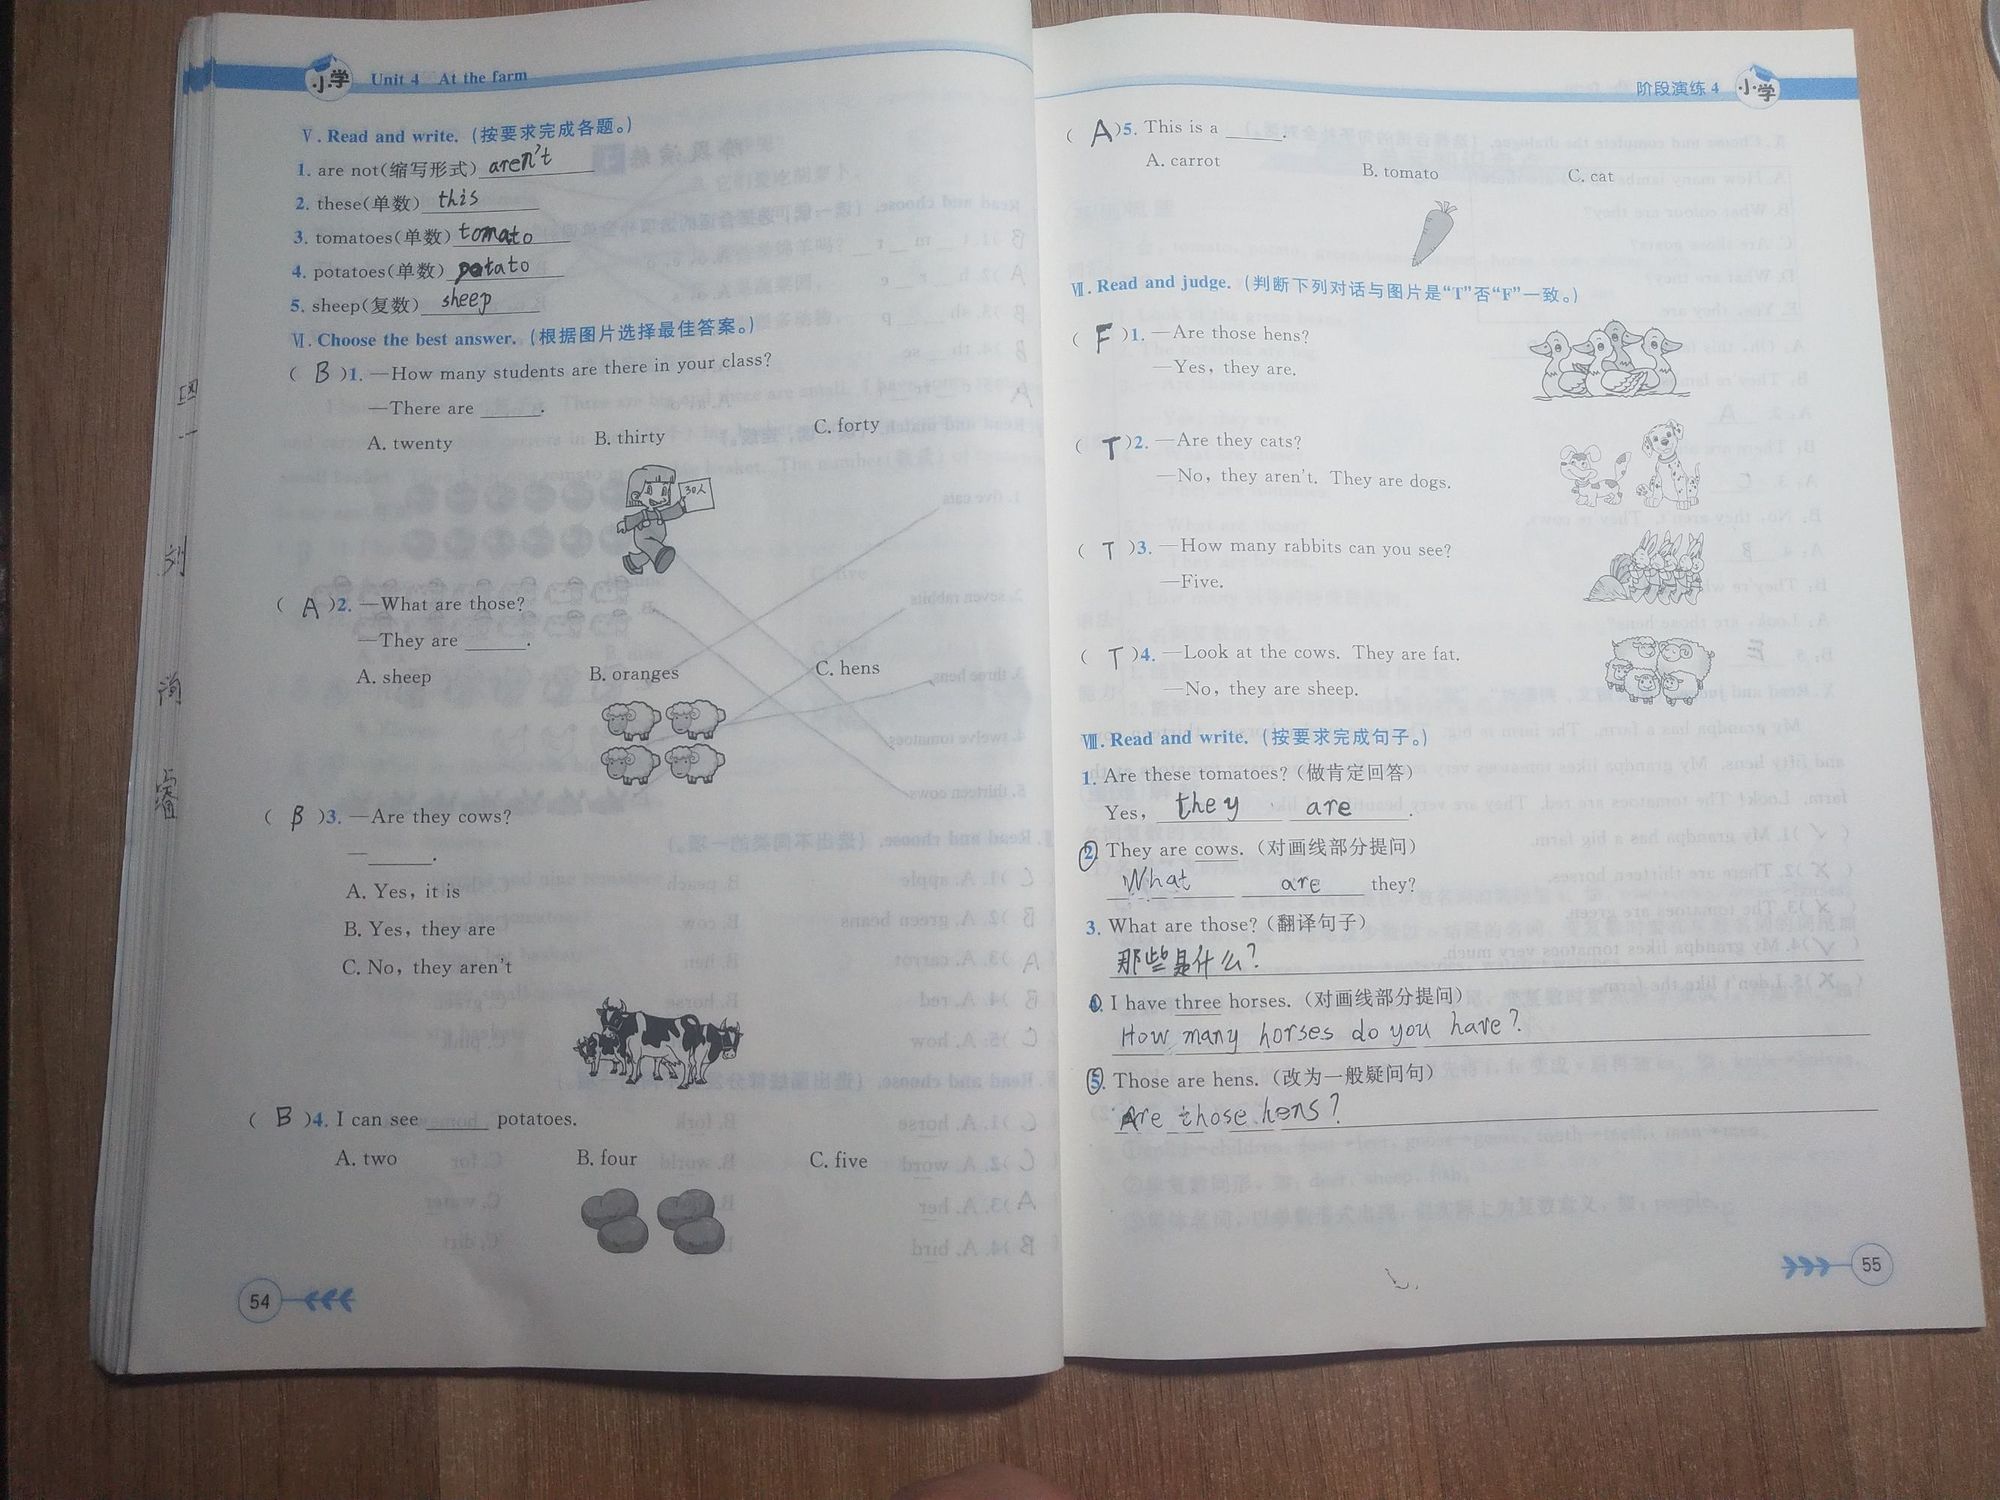 小学 Unit 4 At the farm
Ⅴ. Read and write. (按要求完成各题。)
1. are not(缩写形式) aren't
2. these(单数) this
3. tomatoes(单数) tomato
4. potatoes(单数) potato
5. sheep(复数) sheep
Ⅵ. Choose the best answer. (根据图片选择最佳答案。)
( B )1. —How many students are there in your class?
—There are ______.
A. twenty B. thirty C. forty
30人
( A )2. —What are those?
—They are ______.
A. sheep B. oranges C. hens
( B )3. —Are they cows?
—______.
A. Yes, it is
B. Yes, they are
C. No, they aren't
( B )4. I can see ______ potatoes.
A. two B. four C. five
54
四一 刘
阶段演练 4 小学
( A )5. This is a ______.
A. carrot B. tomato C. cat
Ⅶ. Read and judge. (判断下列对话与图片是“T”否“F”一致。)
( F )1. —Are those hens?
—Yes, they are.
( T )2. —Are they cats?
—No, they aren't. They are dogs.
( T )3. —How many rabbits can you see?
—Five.
( T )4. —Look at the cows. They are fat.
—No, they are sheep.
Ⅷ. Read and write. (按要求完成句子。)
1. Are these tomatoes? (做肯定回答)
Yes, they are.
2. They are cows. (对画线部分提问)
What are they?
3. What are those? (翻译句子)
那些是什么?
4. I have three horses. (对画线部分提问)
How many horses do you have?
5. Those are hens. (改为一般疑问句)
Are those hens?
55